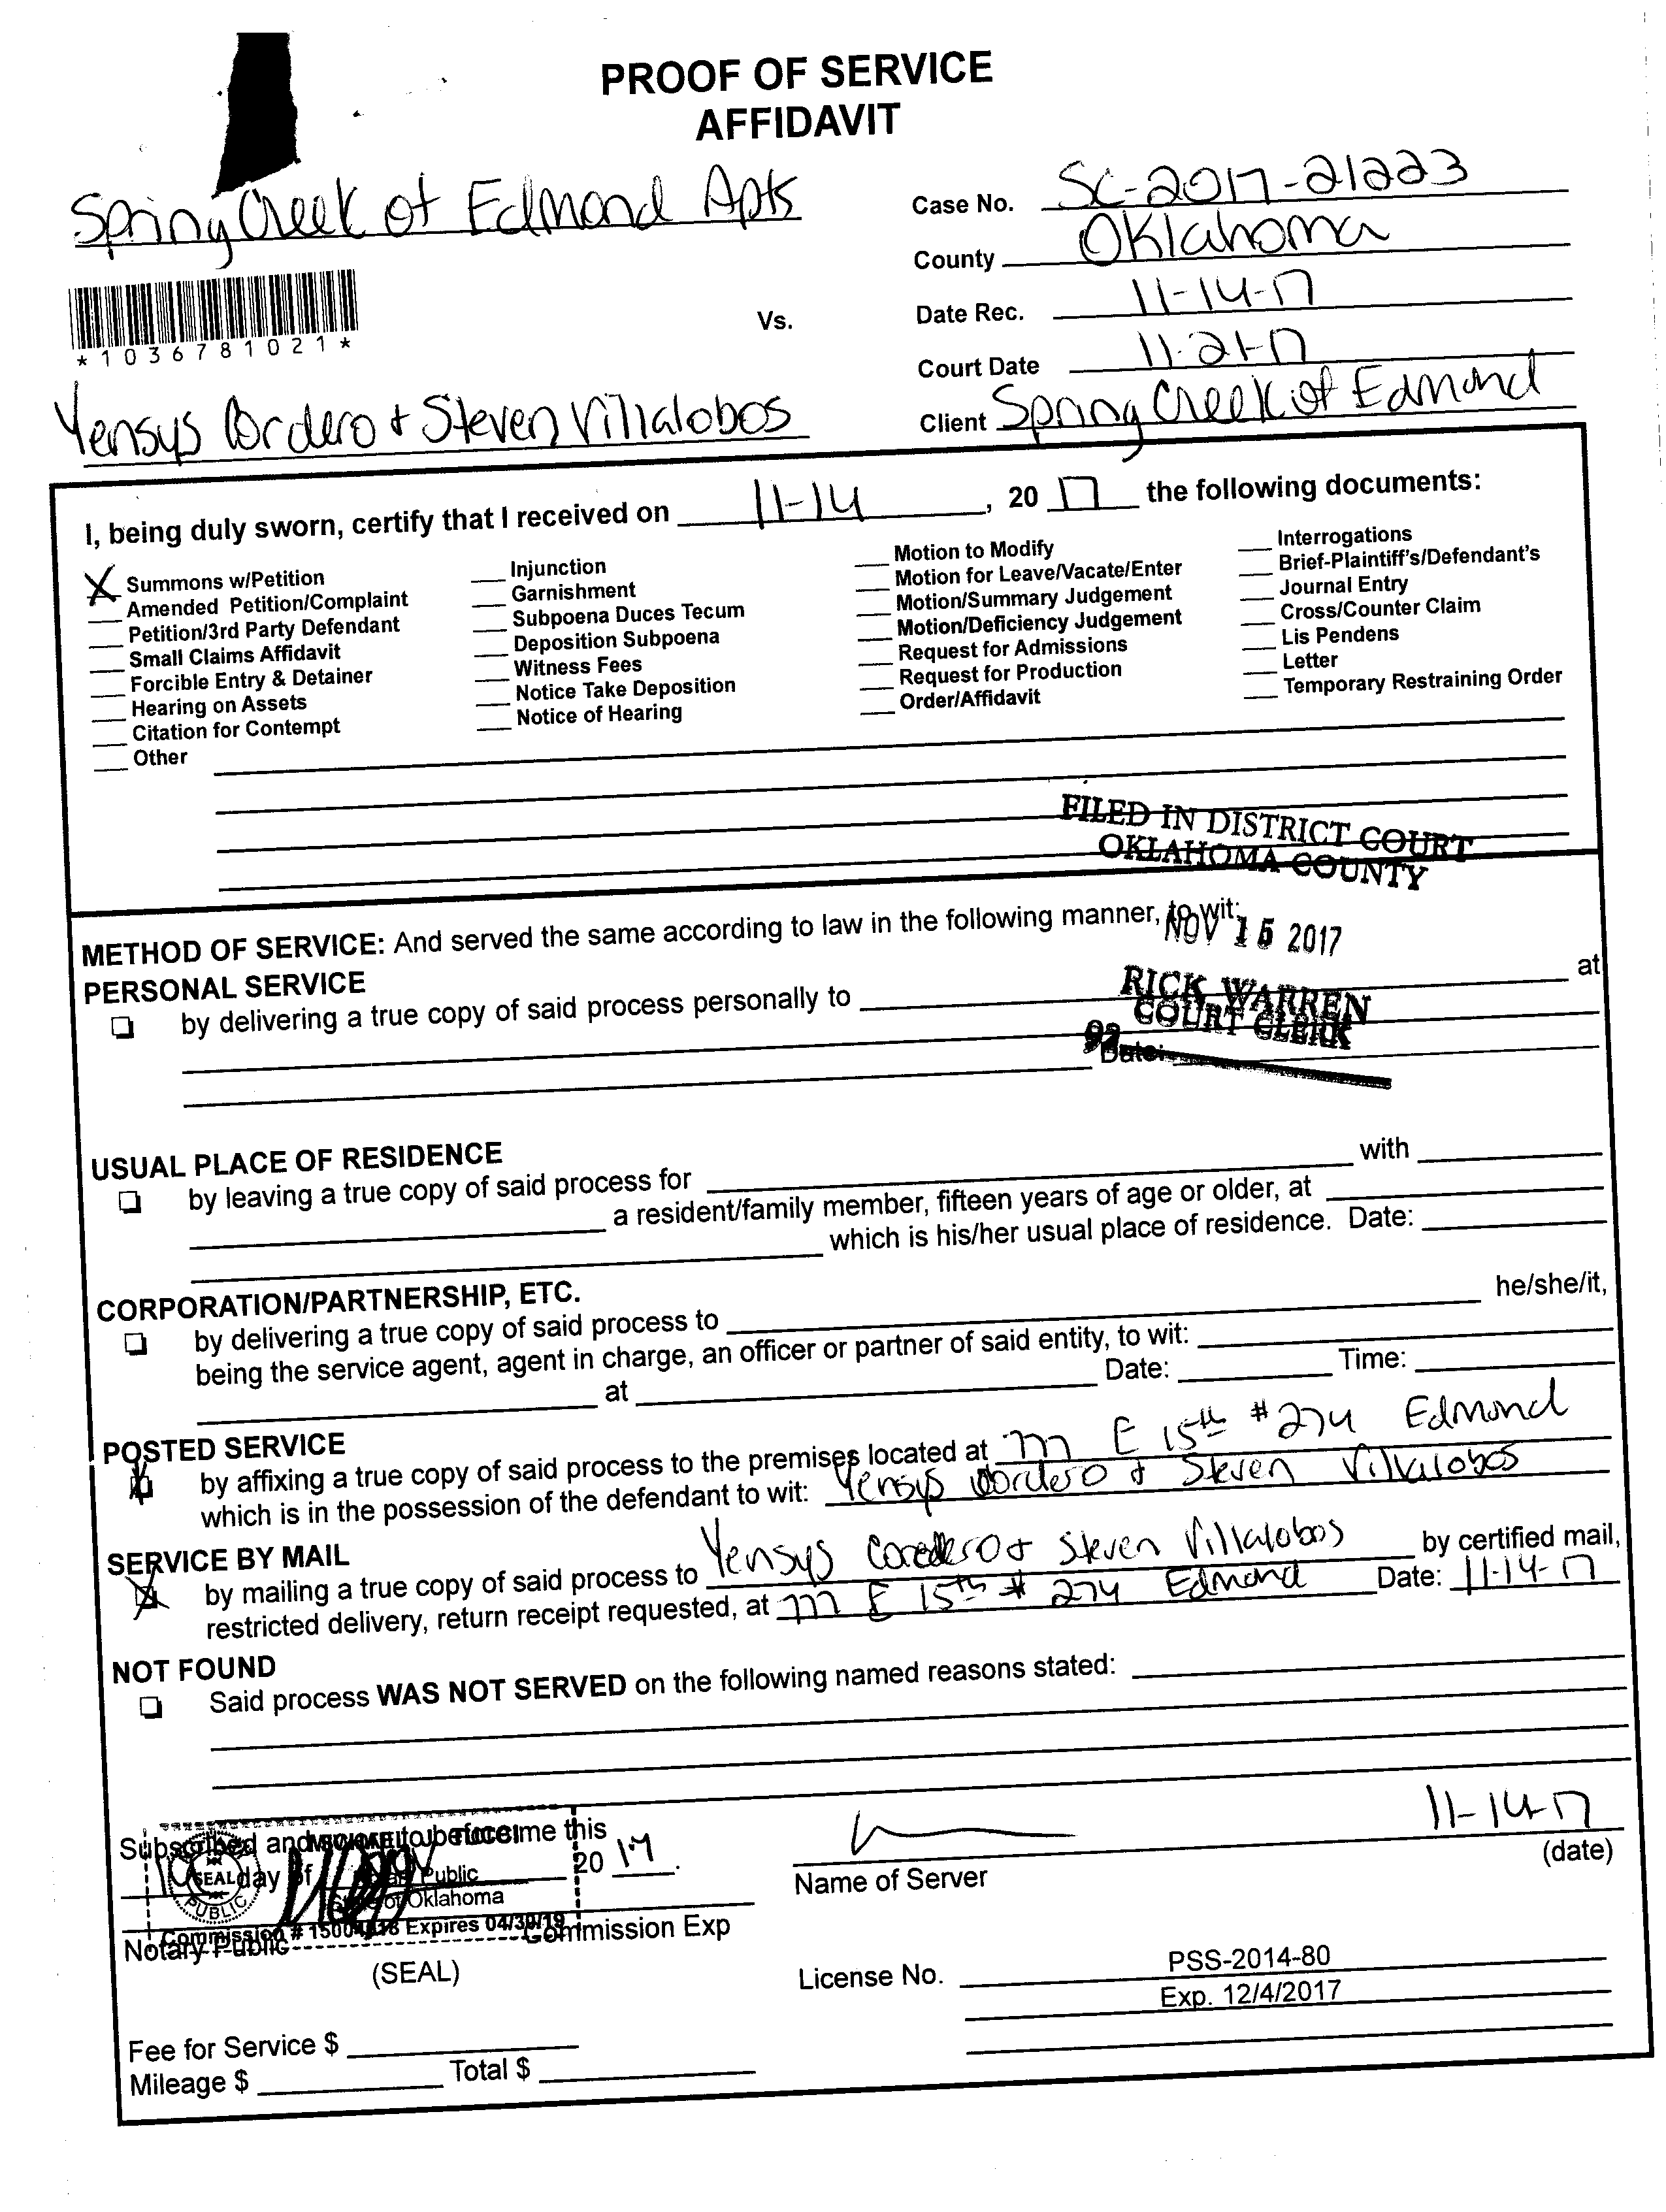 PROOF OF SERVICE
AFFIDAVIT
Spring Creek of Edmond Apts
Case No. SC-2017-21223
County Oklahoma
*1036781021*
Vs.
Date Rec. 11-14-17
Court Date 11-21-17
Yensys Cordero & Steven Villalobos
Client Spring Creek of Edmond
I, being duly sworn, certify that I received on 11-14, 20 17 the following documents:
X Summons w/Petition
Amended Petition/Complaint
Petition/3rd Party Defendant
Small Claims Affidavit
Forcible Entry & Detainer
Hearing on Assets
Citation for Contempt
Other
Injunction
Garnishment
Subpoena Duces Tecum
Deposition Subpoena
Witness Fees
Notice Take Deposition
Notice of Hearing
Motion to Modify
Motion for Leave/Vacate/Enter
Motion/Summary Judgement
Motion/Deficiency Judgement
Request for Admissions
Request for Production
Order/Affidavit
Interrogations
Brief-Plaintiff's/Defendant's
Journal Entry
Cross/Counter Claim
Lis Pendens
Letter
Temporary Restraining Order
FILED IN DISTRICT COURT
OKLAHOMA COUNTY
METHOD OF SERVICE: And served the same according to law in the following manner, to wit:
NOV 15 2017
PERSONAL SERVICE
by delivering a true copy of said process personally to at
RICK WARREN
COURT CLERK
Date:
USUAL PLACE OF RESIDENCE
by leaving a true copy of said process for with
a resident/family member, fifteen years of age or older, at
which is his/her usual place of residence. Date:
CORPORATION/PARTNERSHIP, ETC.
by delivering a true copy of said process to he/she/it,
being the service agent, agent in charge, an officer or partner of said entity, to wit:
at Date: Time:
POSTED SERVICE
by affixing a true copy of said process to the premises located at 777 E 15th #274 Edmond
which is in the possession of the defendant to wit: Yensys Cordero & Steven Villalobos
SERVICE BY MAIL
by mailing a true copy of said process to Yensys Cordero & Steven Villalobos by certified mail,
restricted delivery, return receipt requested, at 777 E 15th # 274 Edmond Date: 11-14-17
NOT FOUND
Said process WAS NOT SERVED on the following named reasons stated:
Subscribed and sworn to before me this
day of 20 17.
SEAL
PUBLIC
Public
State of Oklahoma
Expires 04/30/19
Notary Public Commission Exp
(SEAL)
11-14-17
Name of Server (date)
License No. PSS-2014-80
Exp. 12/4/2017
Fee for Service $
Mileage $ Total $